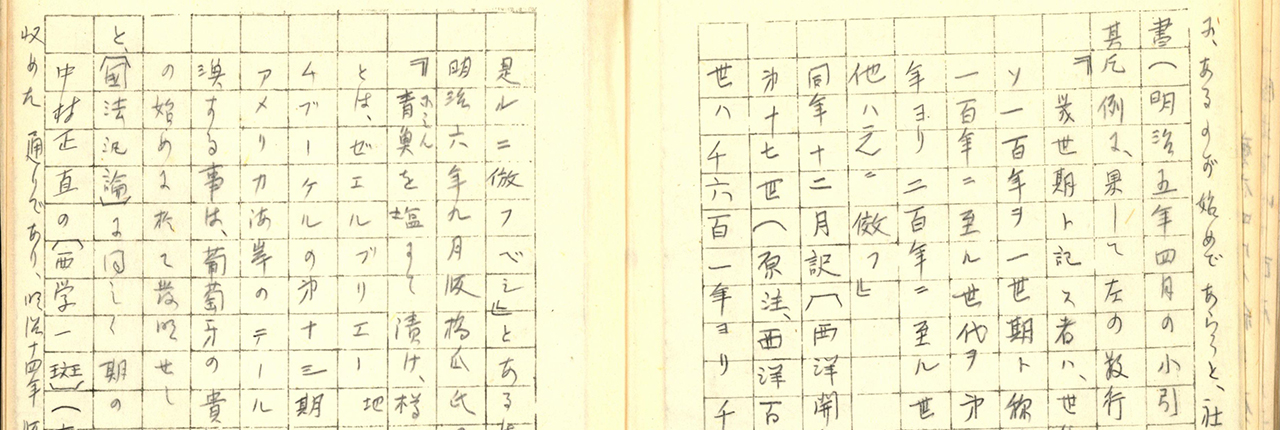 お、あるのが始めであらうと、社
書(明治五年四月の小引
其凡例に、果して左の数行
『幾世期ト記ス者ハ、世
ソ一百年ヲ一世期ト称
一百年ニ至ル世代ヲ第
年ヨリ二百年ニ至ル世
他ハ之ニ倣フ』
同年十二月訳『西洋開
第十七世(原注、西洋百
世ハ千六百一年ヨリ千
是ルニ倣フベシ』とある
明治六年九月版橋爪氏
『青奥を塩まて漬け、樽
とは、ゼエルブリエー地
ムブーケルの第十三期
アメリカ海岸のテール
渙する事は、葡萄牙の貴
の始めに於て発明せし
と、『国法汎論』に同じく期の
中村正直の『西学一斑』(
収めた通りであり、明治十四年版